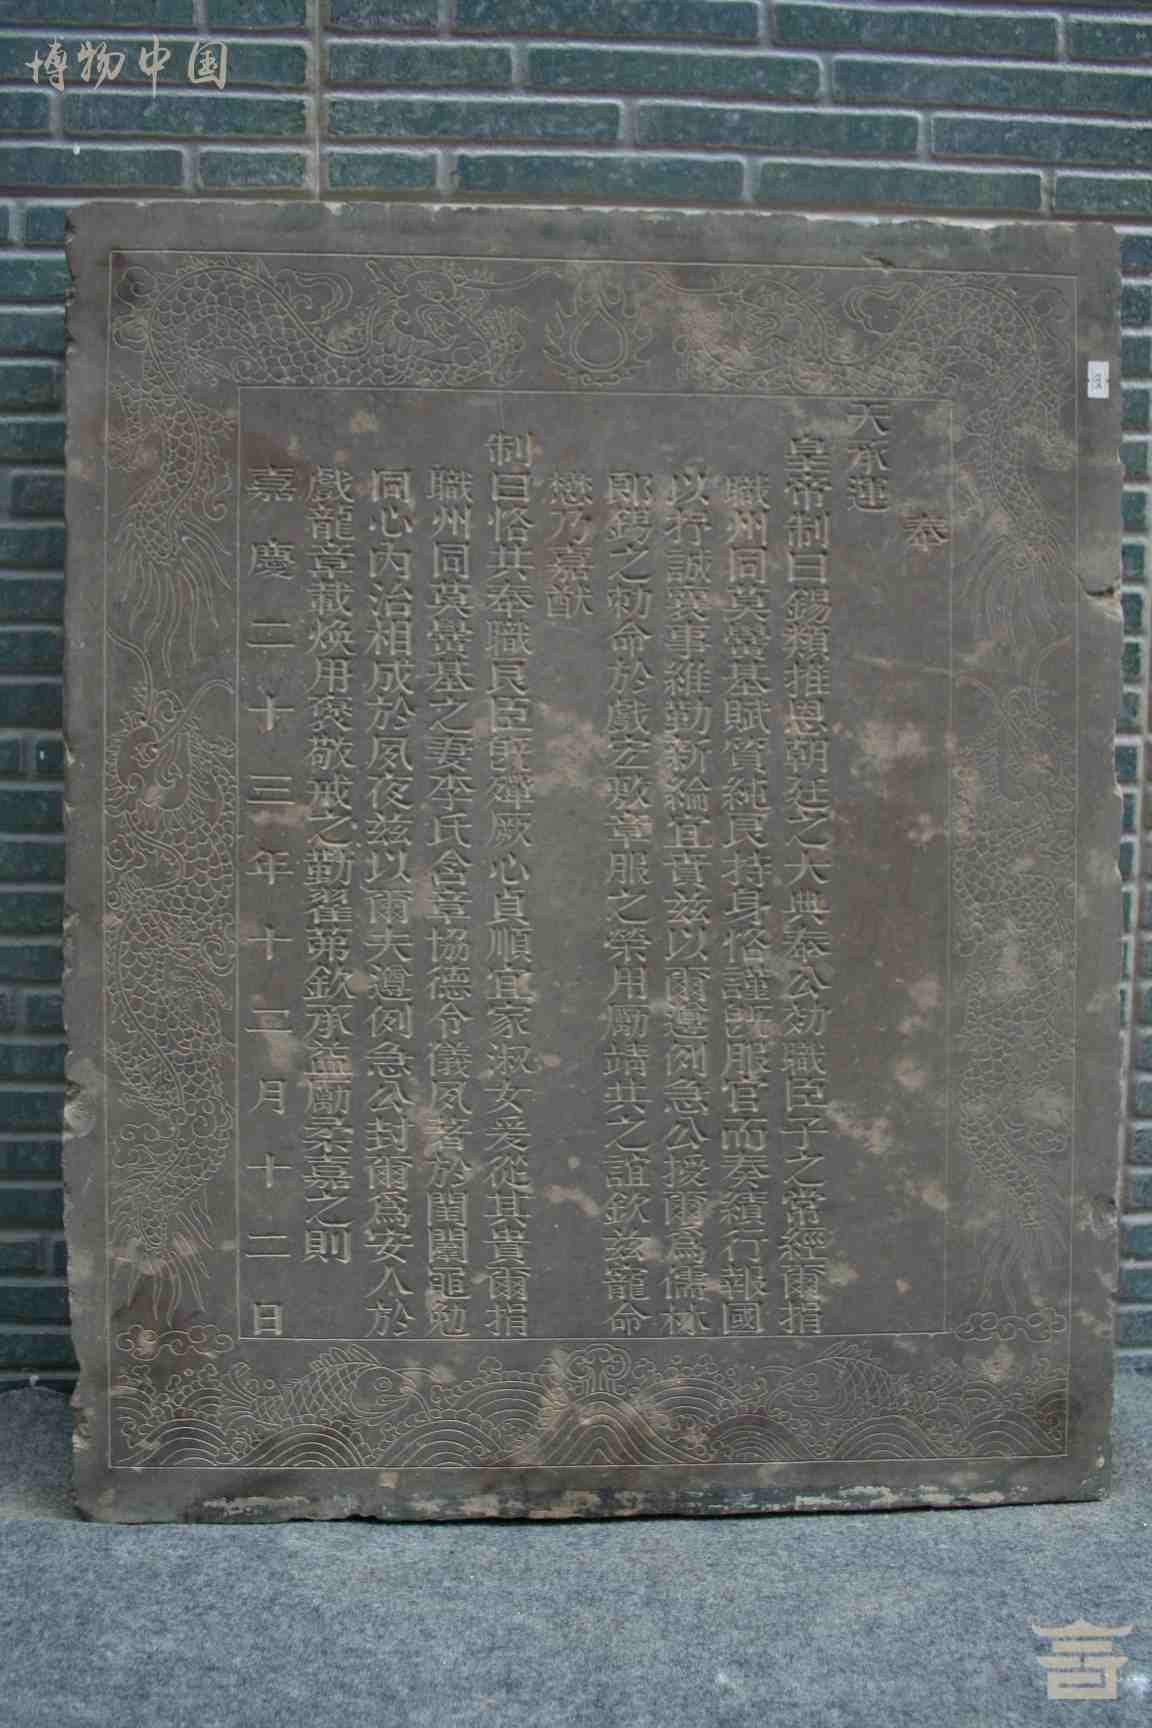 博物中国
奉
天承運
皇帝制曰錫類推恩朝廷之大典奉公効職臣子之常經爾捐
職州同莫 基賦質純良持身恪謹旣服官而奏績行報國
以抒誠寀事維勤新綸宜賁兹以爾遵例急公授爾爲儒林
郎錫之勅命於戲宏敷章服之榮用勵靖共之誼欽兹寵命
懋乃嘉猷
制曰恪共奉職良臣旣殫厥心貞順宜家淑女爰從其貴爾捐
職州同莫 基之妻李氏含章協德令儀夙著於閨闈黽勉
同心內治相成於夙夜兹以爾夫遵例急公封爾爲安人於
戲龍章載焕用褒敬戒之勤翟茀欽承益勵柔嘉之則
嘉慶二十三年十二月十二日